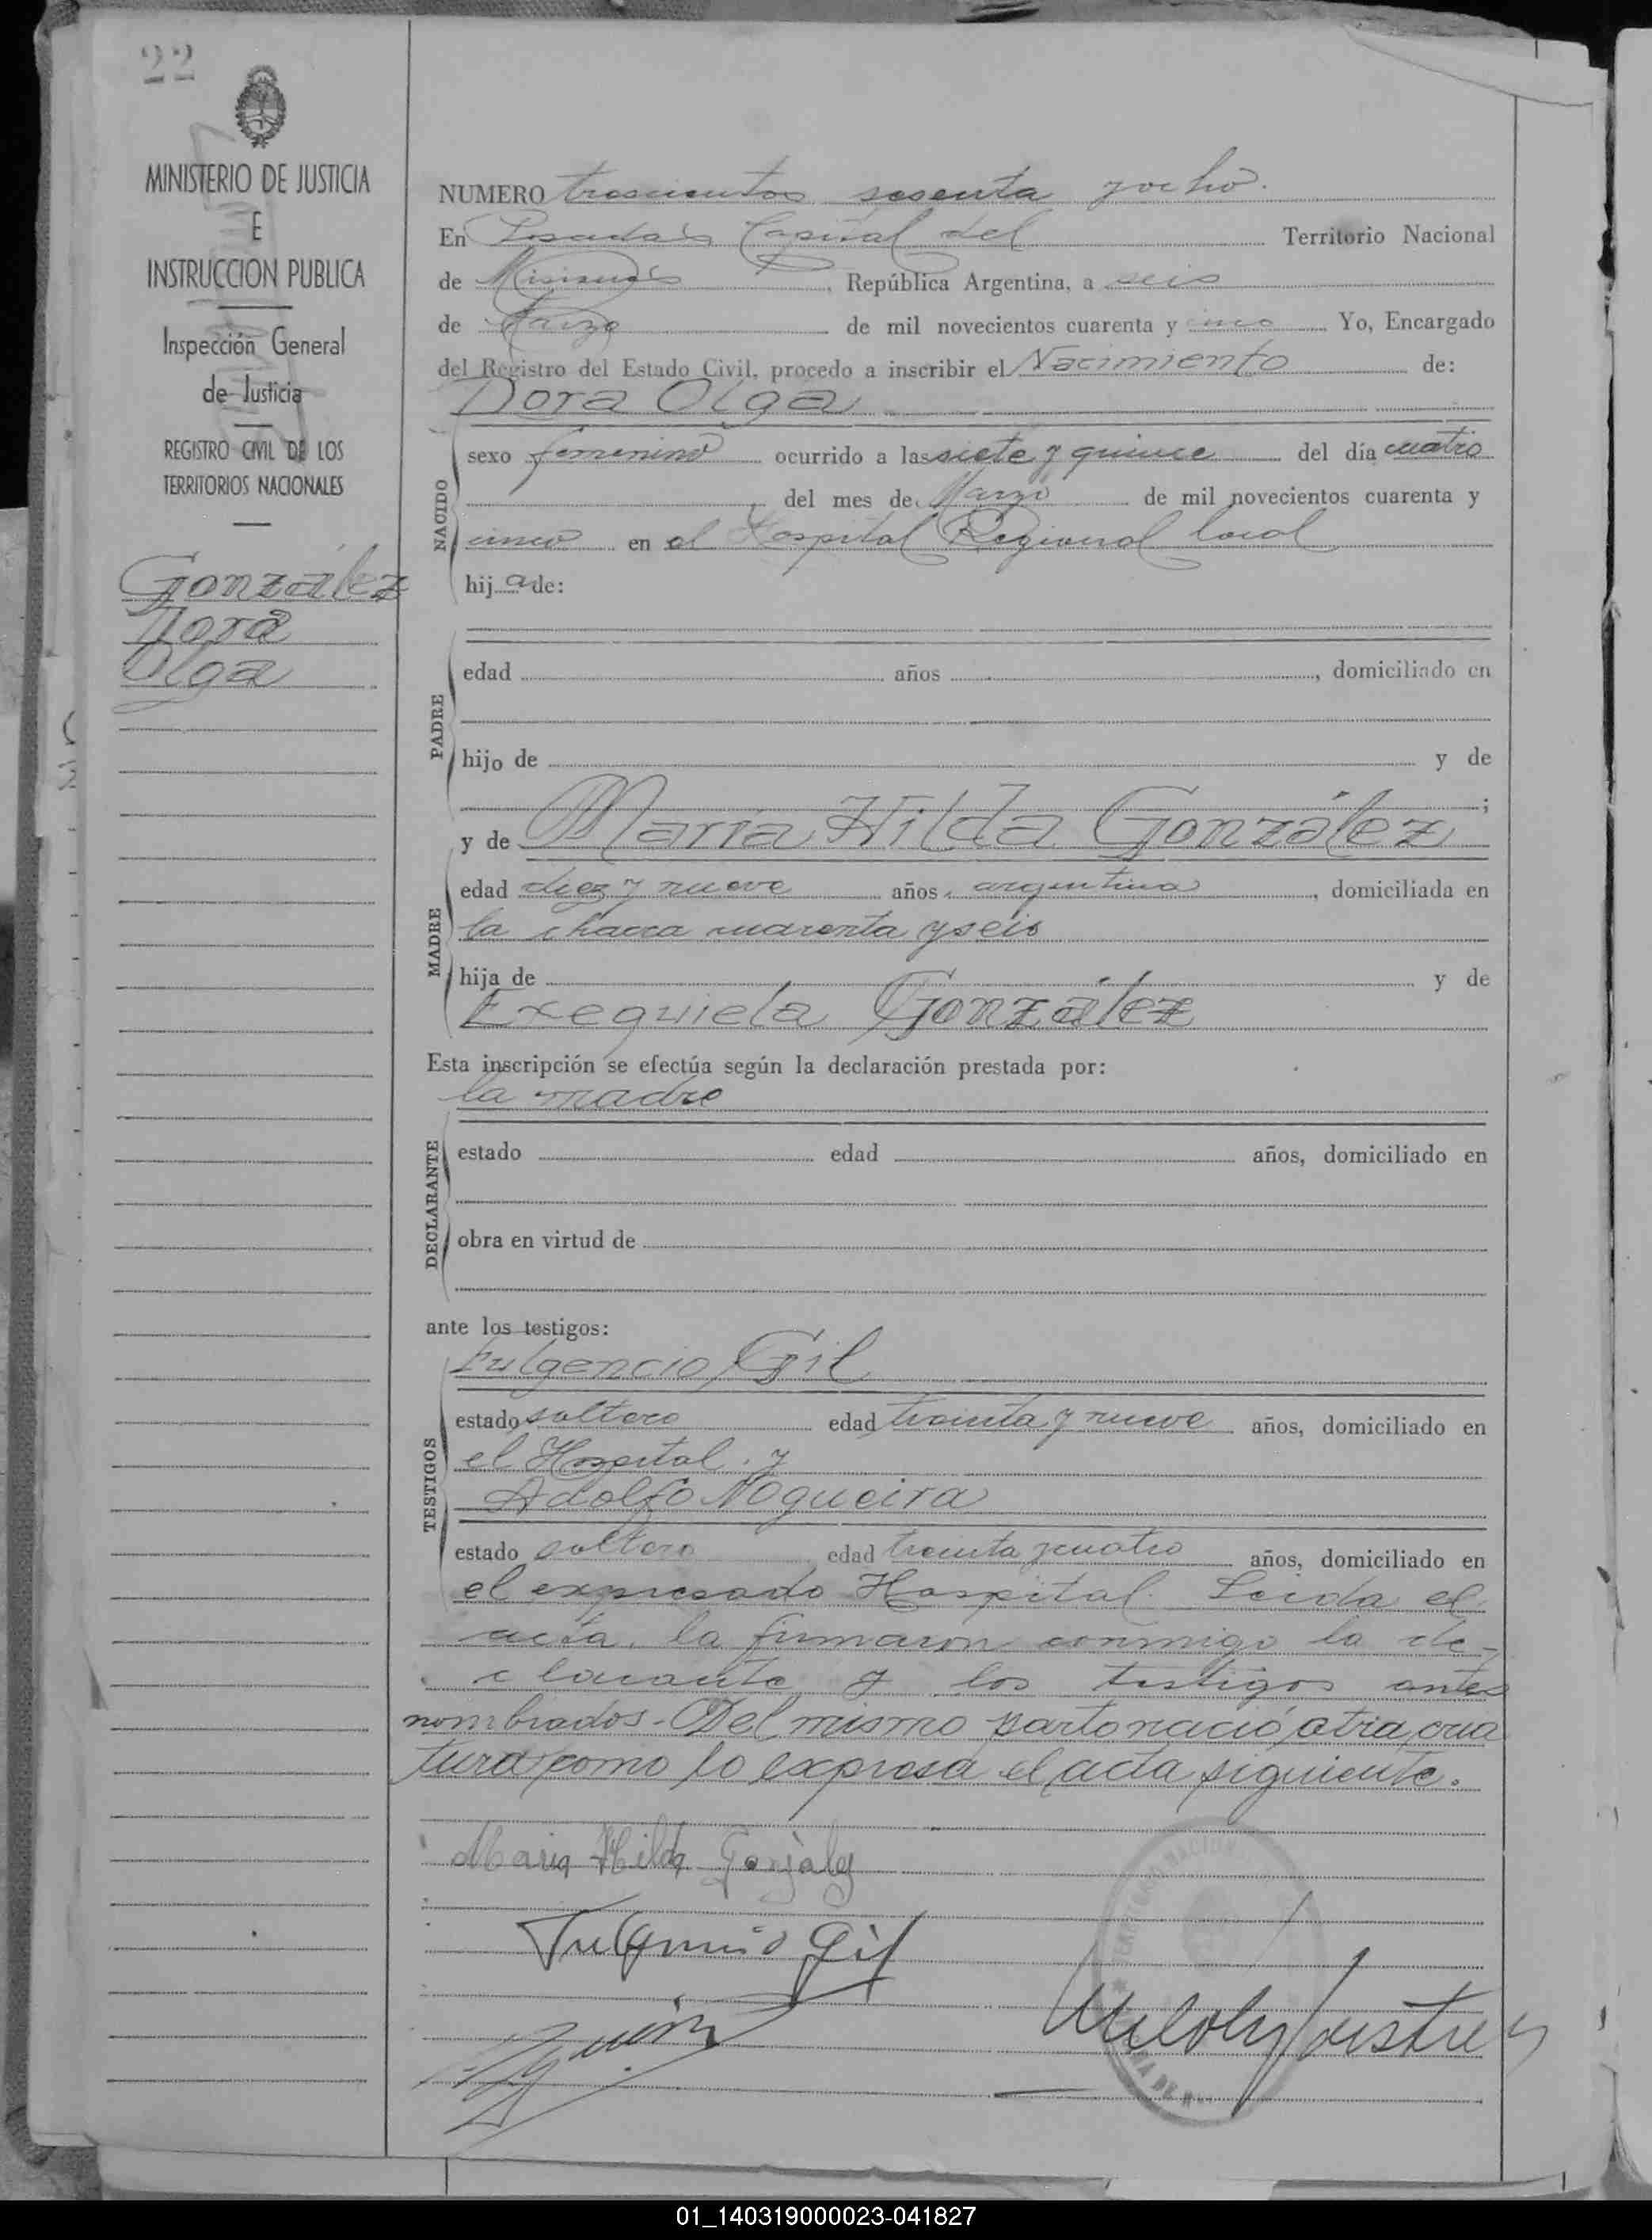 22
MINISTERIO DE JUSTICIA
E
INSTRUCCION PUBLICA
Inspección General
de Justicia
REGISTRO CIVIL DE LOS
TERRITORIOS NACIONALES
González
Dora
Olga
NUMERO trescientos sesenta y ocho.
En Posadas Capital del Territorio Nacional
de Misiones, República Argentina, a seis
de Marzo de mil novecientos cuarenta y cinco Yo, Encargado
del Registro del Estado Civil, procedo a inscribir el Nacimiento de:
Dora Olga
NACIDO
sexo femenino ocurrido a las siete y quince del día cuatro
del mes de Marzo de mil novecientos cuarenta y
cinco en el Hospital Regional local
hij a de:
PADRE
edad años , domiciliado en
hijo de y de
;
y de María Hilda González
MADRE
edad diez y nueve años, argentina, domiciliada en
la chacra cuarenta y seis
hija de y de
Exequiela González
Esta inscripción se efectúa según la declaración prestada por:
la madre
DECLARANTE
estado edad años, domiciliado en
obra en virtud de
ante los testigos:
TESTIGOS
Fulgencio Gil
estado soltero edad treinta y nueve años, domiciliado en
el Hospital. y
Adolfo Nogueira
estado soltero edad treinta y cuatro años, domiciliado en
el expresado Hospital. Leida el
acta, la firmaron conmigo la de-
clarante y los testigos antes
nombrados. Del mismo parto nació otra cria
tura como lo expresa el acta siguiente.
Maria Hilda Gonzàlez
Fulgencio Gil
01_140319000023-041827